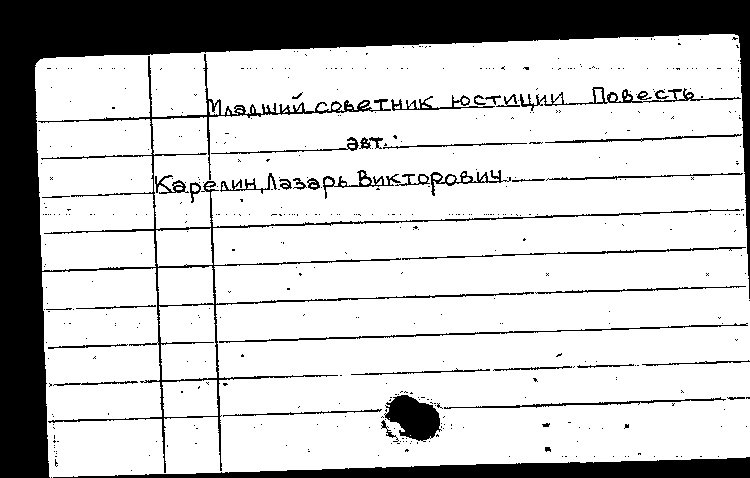 Младший советник юстиции Повесть.
авт.:
Карелин, Лазарь Викторович.